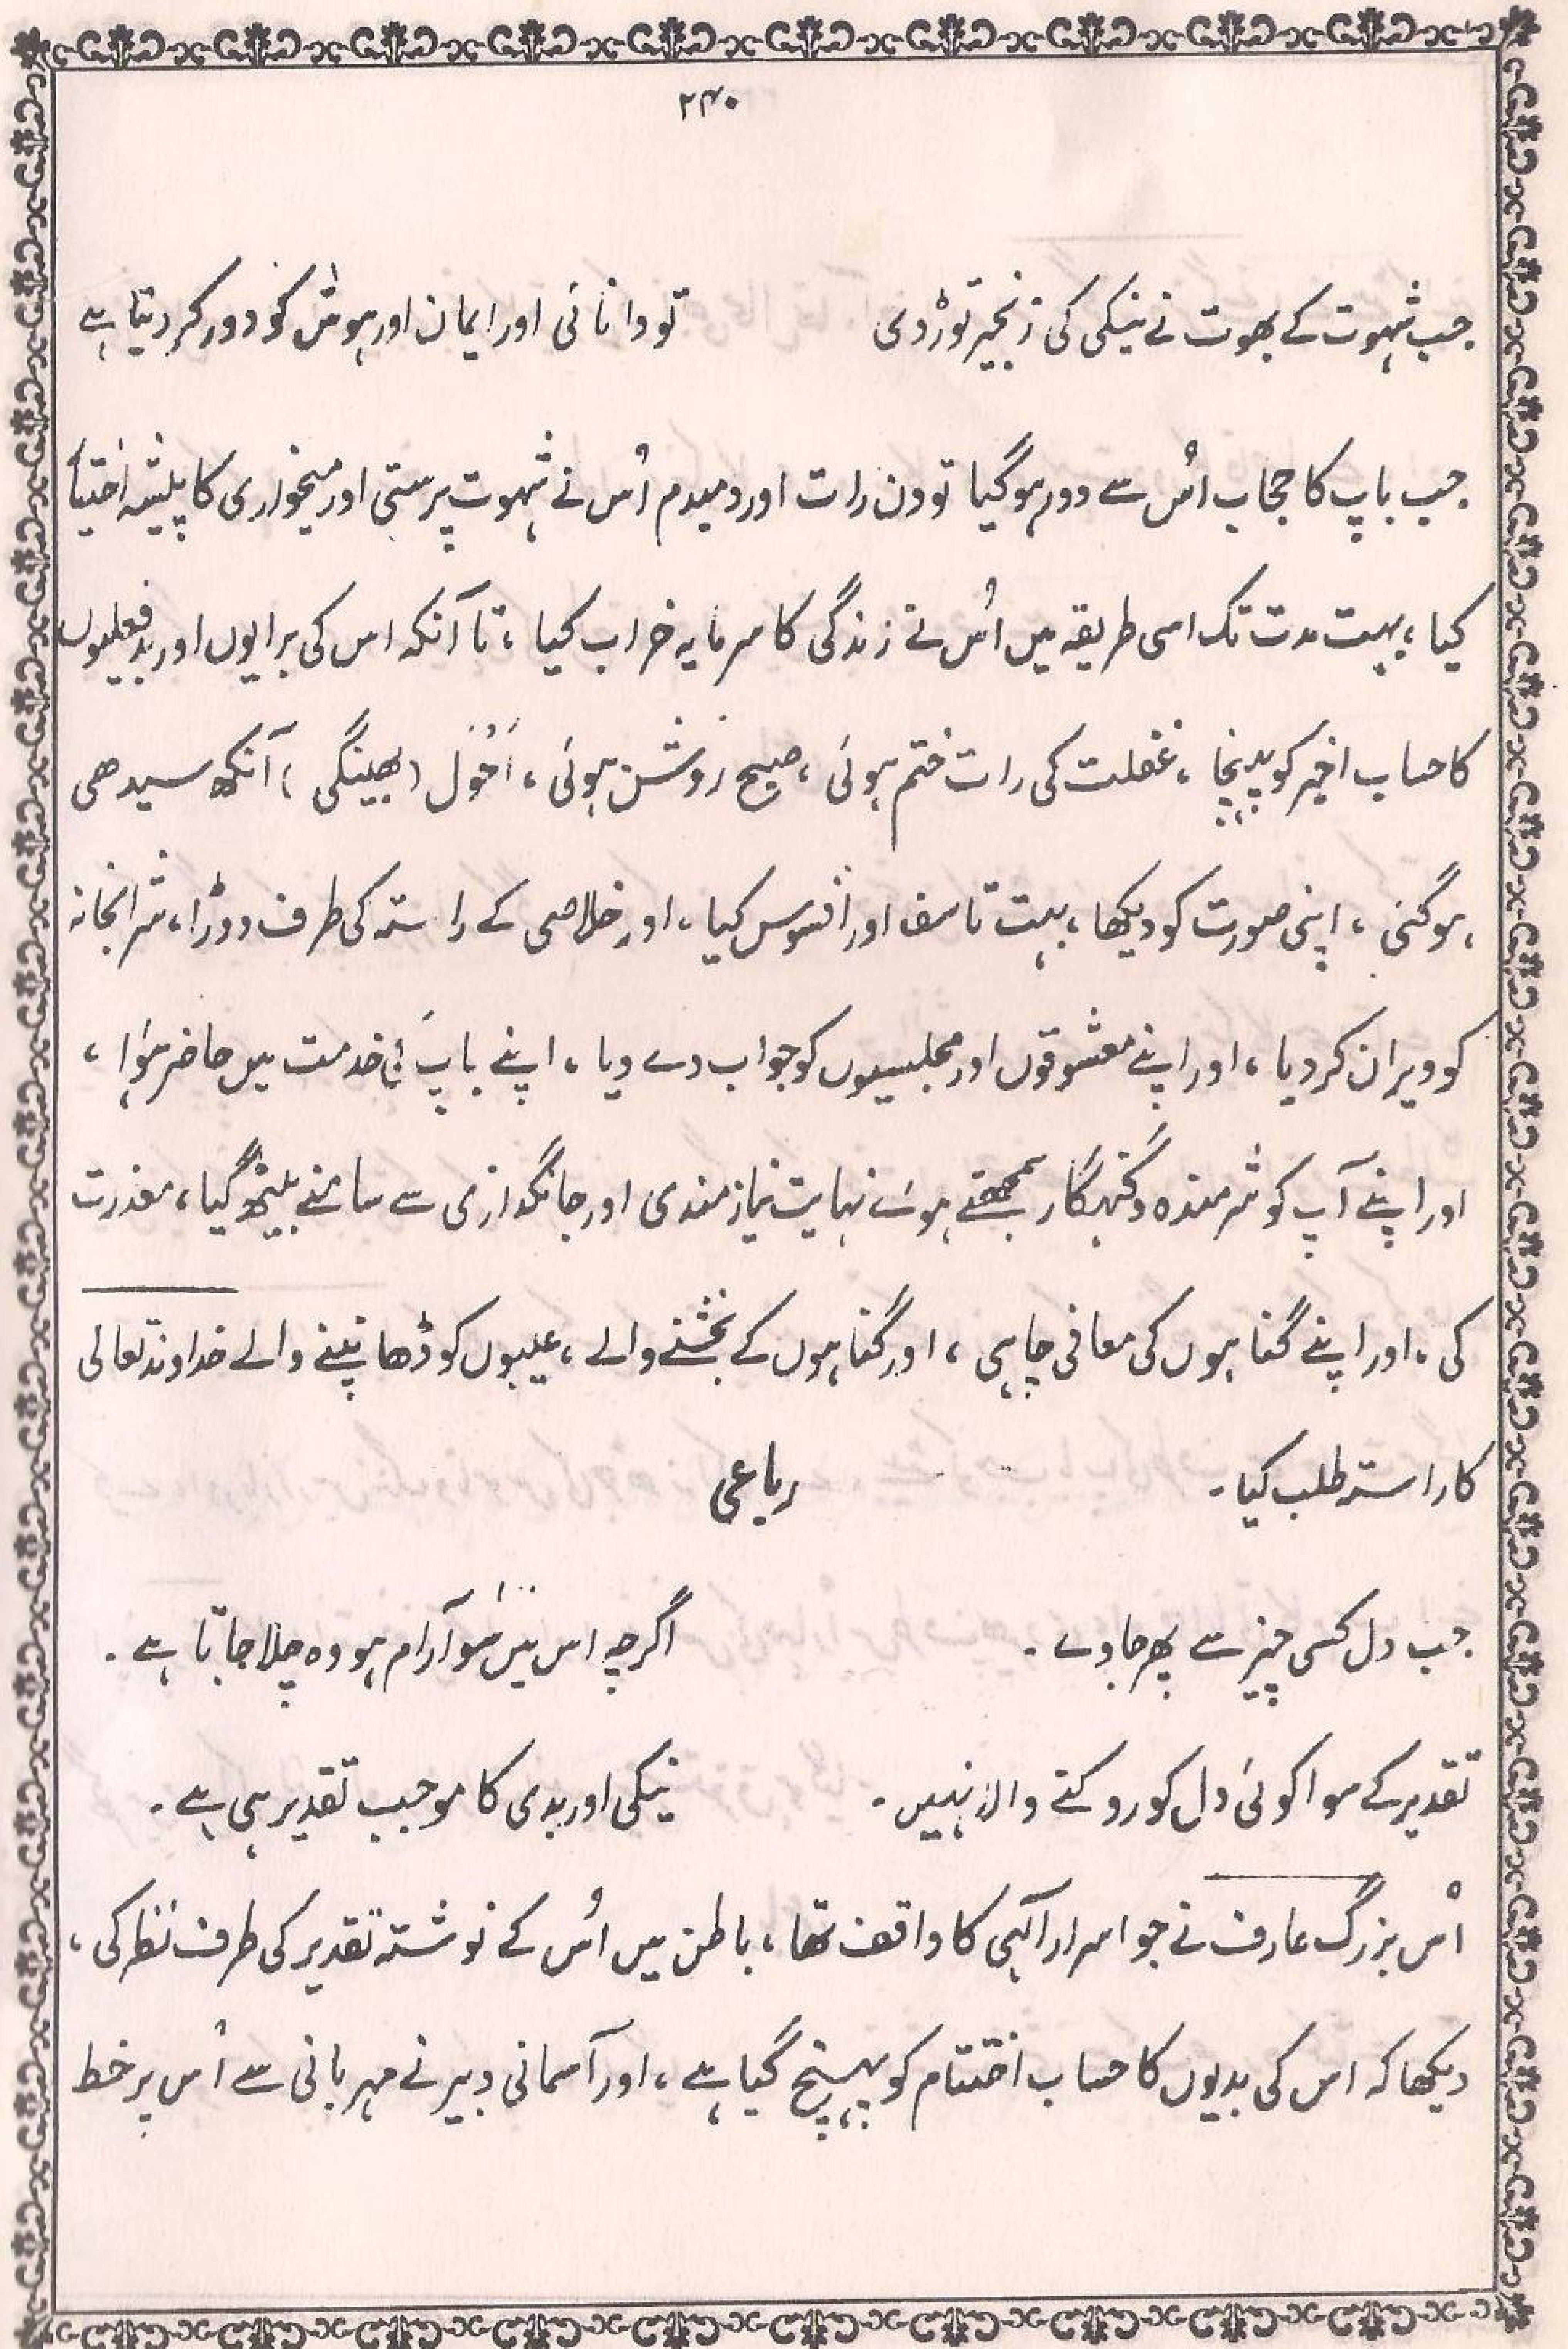 ۲۴۰
جب شہوت کے بھوت نے نیکی کی زنجیر توڑ دی تو دانائی اور ایمان اور ہوش کو دور کر دیتا ہے
جب باپ کا حجاب اُس سے دور ہو گیا تو دن رات اور دمبدم اُس نے شہوت پرستی اور میخواری کا پیشہ اختیار
کیا ، بہت مدت تک اسی طریقہ میں اُس نے زندگی کا سرمایہ خراب کیا ، تا آنکہ اس کی برایوں اور بدفعلیوں
کا حساب اخیر کو پہنچا ، غفلت کی رات ختم ہوئی ، صبح روشن ہوئی ، اَحْوَل (بھینگی) آنکھ سیدھی
ہو گئی ، اپنی صورت کو دیکھا ، بہت تاسف اور افسوس کیا ، اور خلاصی کے راستہ کی طرف دوڑا ، شرابخانہ
کو ویران کر دیا ، اور اپنے معشوقوں اور مجلسیوں کو جواب دے دیا ، اپنے باپ کی خدمت میں حاضر ہوٰا ،
اور اپنے آپ کو شرمندہ و گنہگار سمجھتے ہوئے نہایت نیازمندی اور جانگدازی سے سامنے بیٹھ گیا ، معذرت
کی ، اور اپنے گناہوں کی معافی چاہی ، اور گناہوں کے بخشنے والے ، عیبوں کو ڈھانپنے والے خداوند تعالی
کا راستہ طلب کیا ۔ رباعی
جب دل کسی چیز سے پھر جاوے ۔ اگرچہ اس میں سَو آرام ہو وہ چلا جاتا ہے ۔
تقدیر کے سوا کوئی دل کو روکنے والا نہیں ۔ نیکی اور بدی کا موجب تقدیر ہی ہے ۔
اُس بزرگ عارف نے جو اسرار الٰہی کا واقف تھا ، باطن میں اُس کے نوشتہ تقدیر کی طرف نظر کی ،
دیکھا کہ اس کی بدیوں کا حساب اختتام کو پہنچ گیا ہے ، اور آسمانی دبیر نے مہربانی سے اُس پر خط